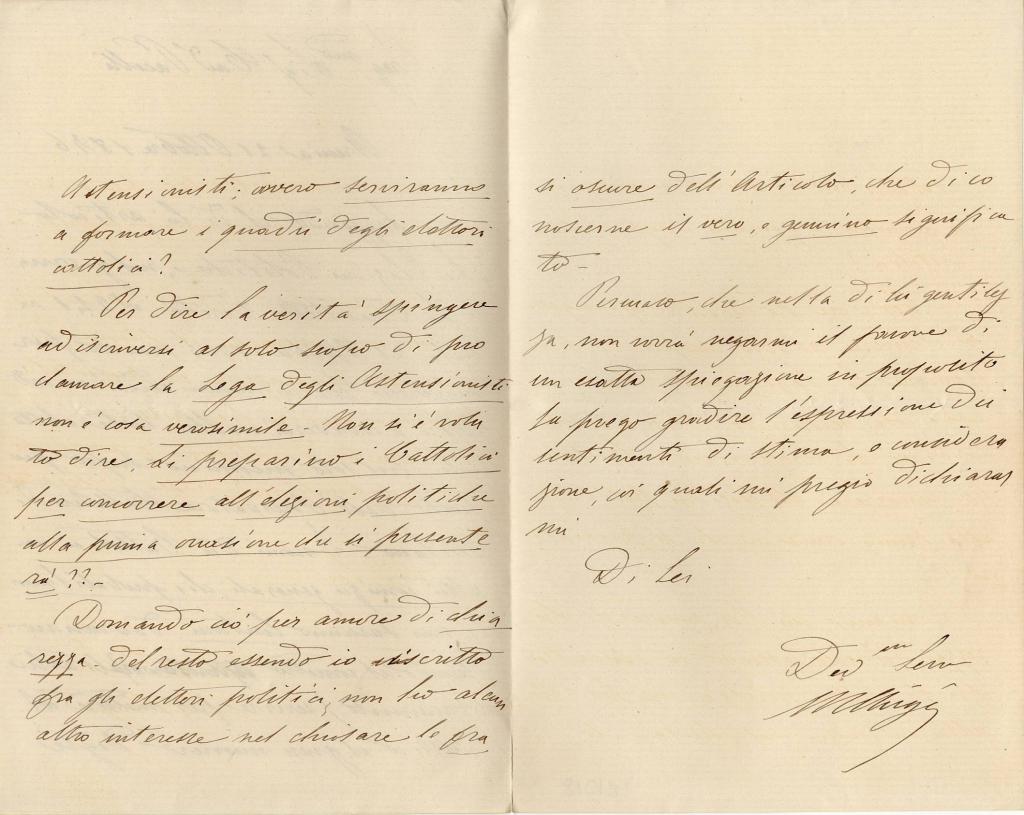 Astensionisti; ovvero serviranno
a formare i quadri degli elettori
cattolici?
Per dire la verità spingere
ad iscriversi al solo scopo di pro
clamare la Lega degli Astensionisti
non è cosa verosimile. Non si è volu
to dire, si preparino i Cattolici
per concorrere all'elezioni politiche
alla prima occasione che si presente
rà??-
Domando ciò per amore di chia
rezza. Del resto essendo io iscritto
fra gli elettori politici, non ho alcun
altro interesse nel chiosare le fra
si oscure dell'Articolo, che di co
noscerne il vero, e genuino significa
to-
Persuaso, che nella di lei gentilez
za, non vorrà negarmi il favore di
un esatta spiegazione in proposito
la prego gradire l'espressione dei
sentimenti di stima, e considera
zione, coi quali mi pregio dichiarar
mi
Di Lei
Dev mo Serv